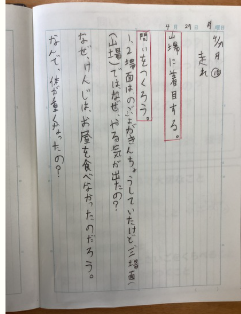 4月29日 月曜日
4/29月 ㊤
走れ
山場に着目する。
問いをつくろう。
1、2場面はのぶよがきんちょうしていたけど(三場面)
(山場)ではなぜ、やる気が出たの?
なぜ、けんじは、お昼を食べなかったのだろう。
なんで、体が重くなったの?